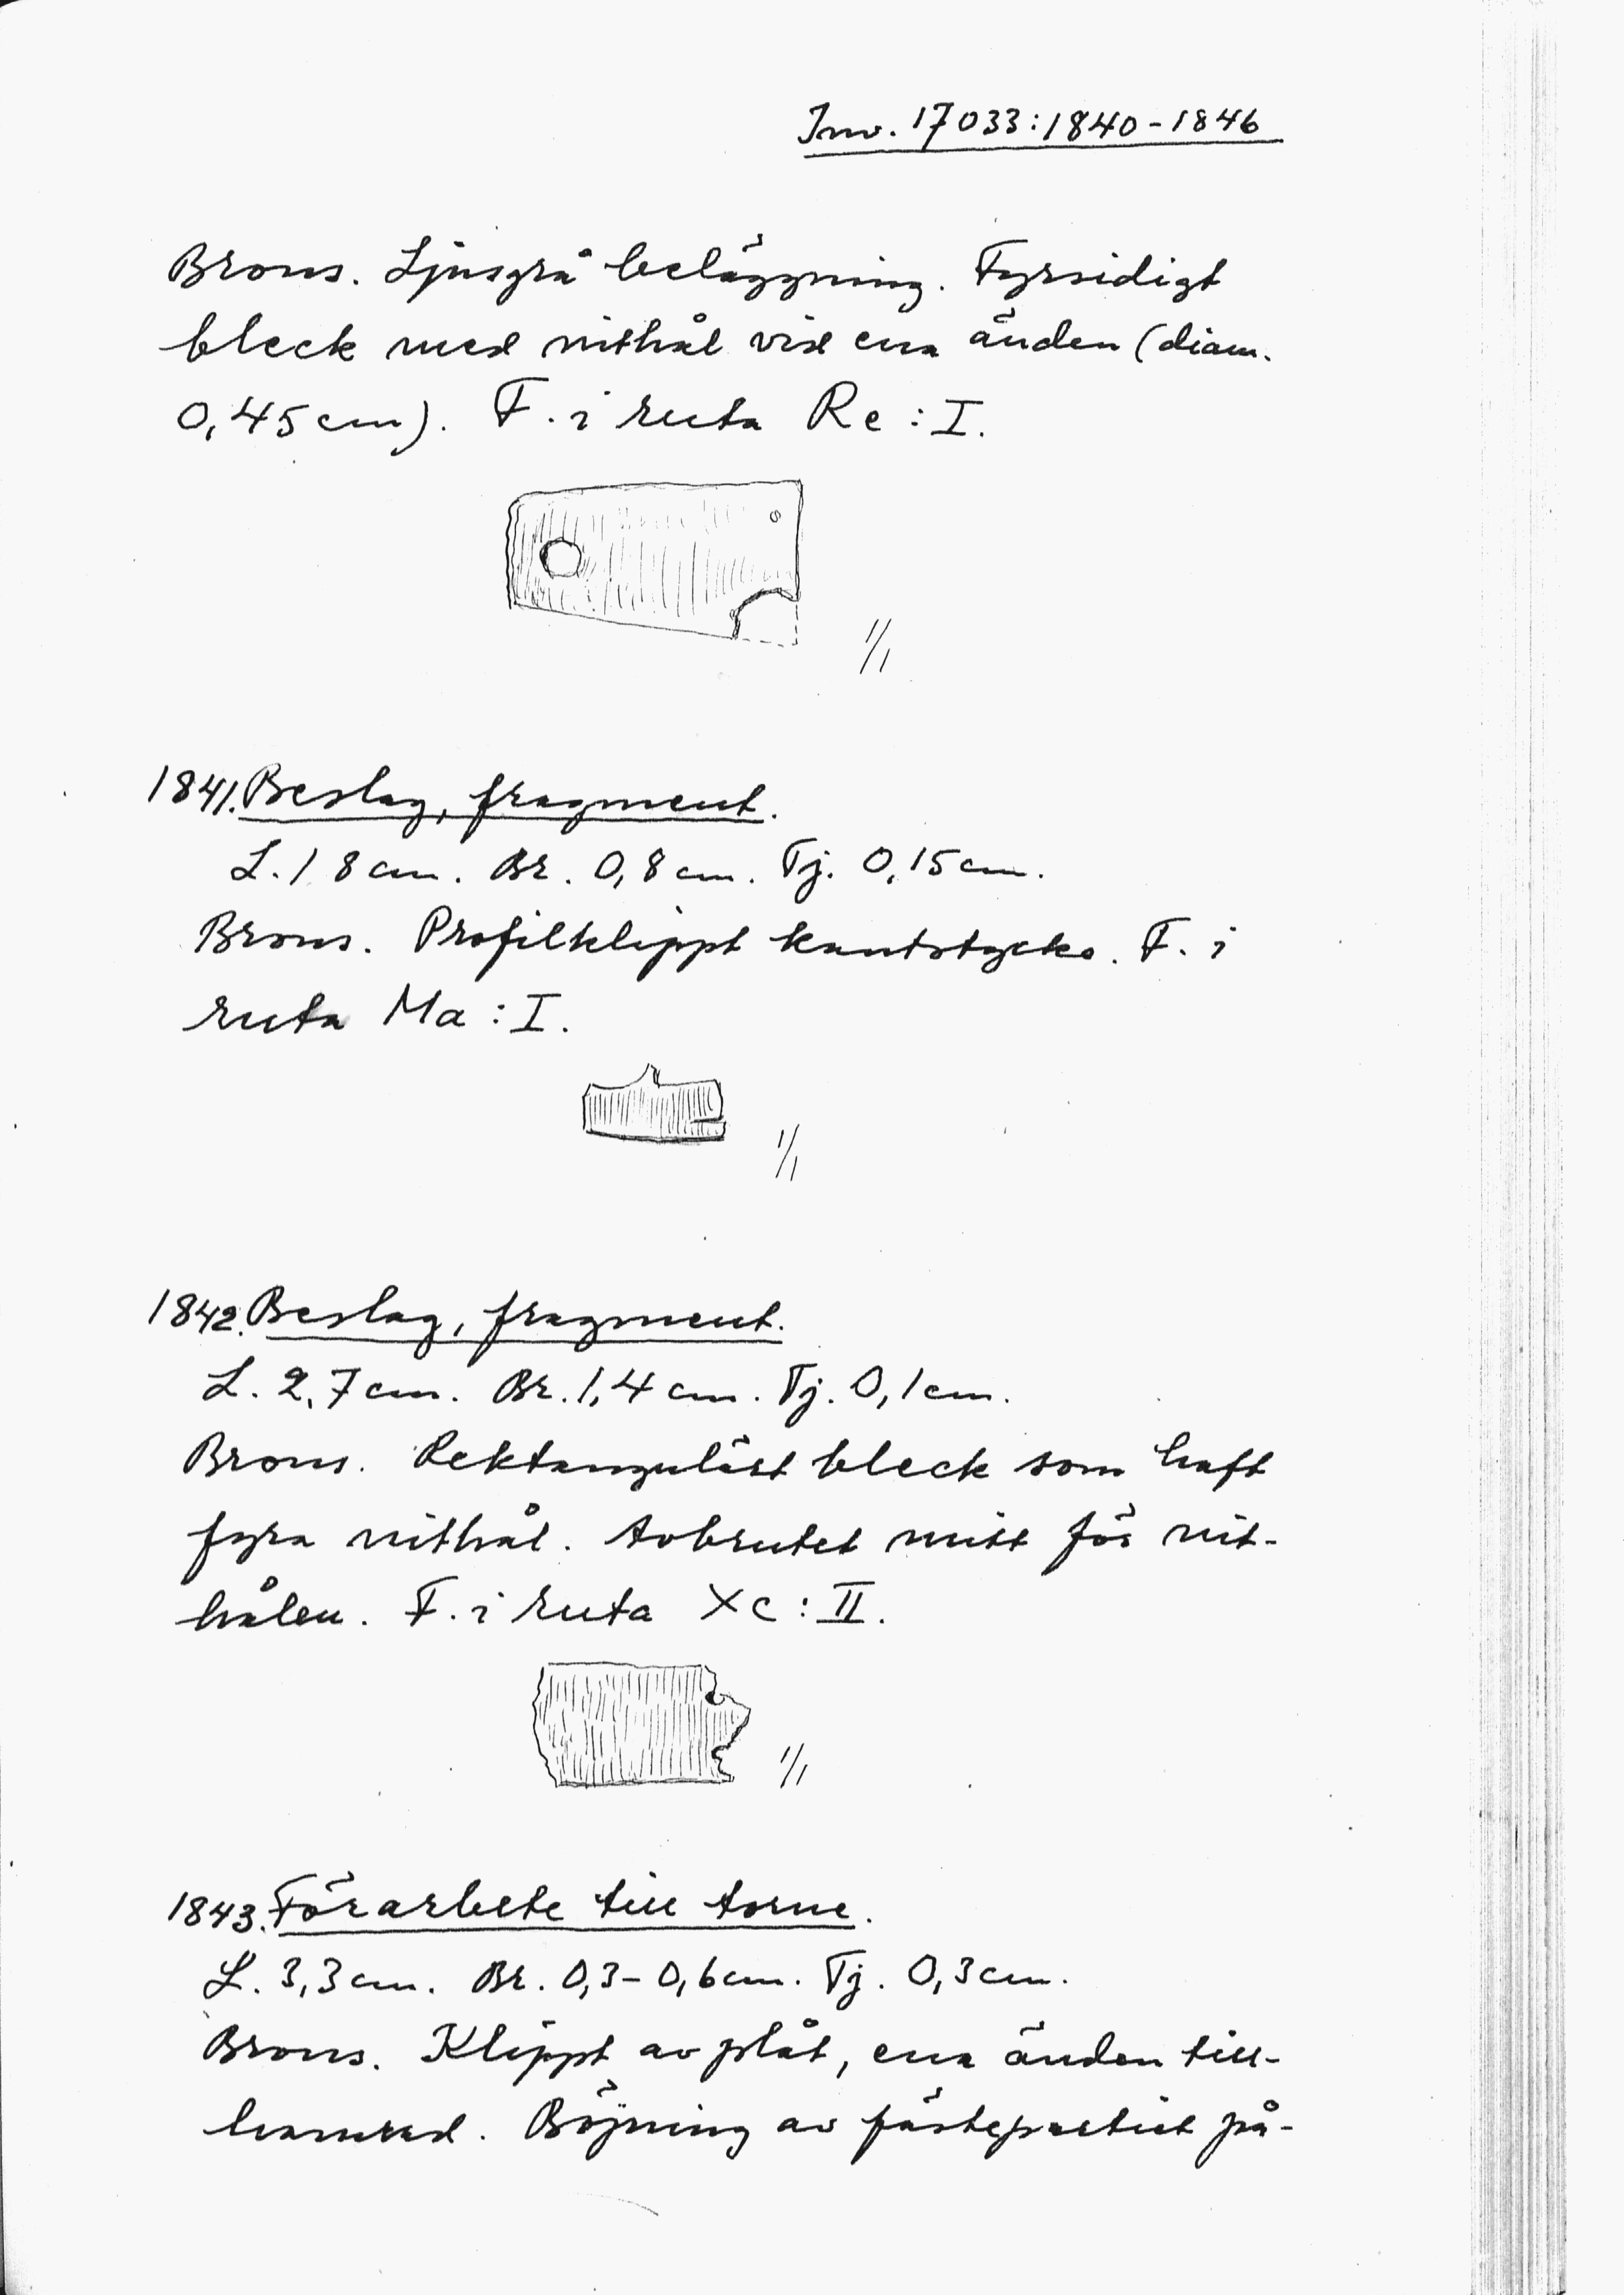 Inv. 17033:1840-1846
Brons. Ljusgrå beläggning. Fyrsidigt
bleck med nithål vid ena änden (diam.
0,45 cm). F. i ruta Rc : I.
1/1
1841. Beslag, fragment.
L. 1 8 cm. Br. 0,8 cm. Tj. 0,15 cm.
Brons. Profilklippt kantstycke. F. i
ruta Ma : I.
1/1
1842. Beslag, fragment.
L. 2,7 cm. Br. 1,4 cm. Tj. 0,1 cm.
Brons. Rektangulärt bleck som haft
fyra nithål. Avbrutet mitt för nit-
hålen. F. i ruta Xc : II.
1/1
1843. Förarbete till torne.
L. 3,3 cm. Br. 0,3-0,6 cm. Tj. 0,3 cm.
Brons. Klippt av plåt, ena änden till-
hamrad. Böjning av fästepartiet på-